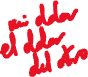 mi dolor
el dolor
del otro